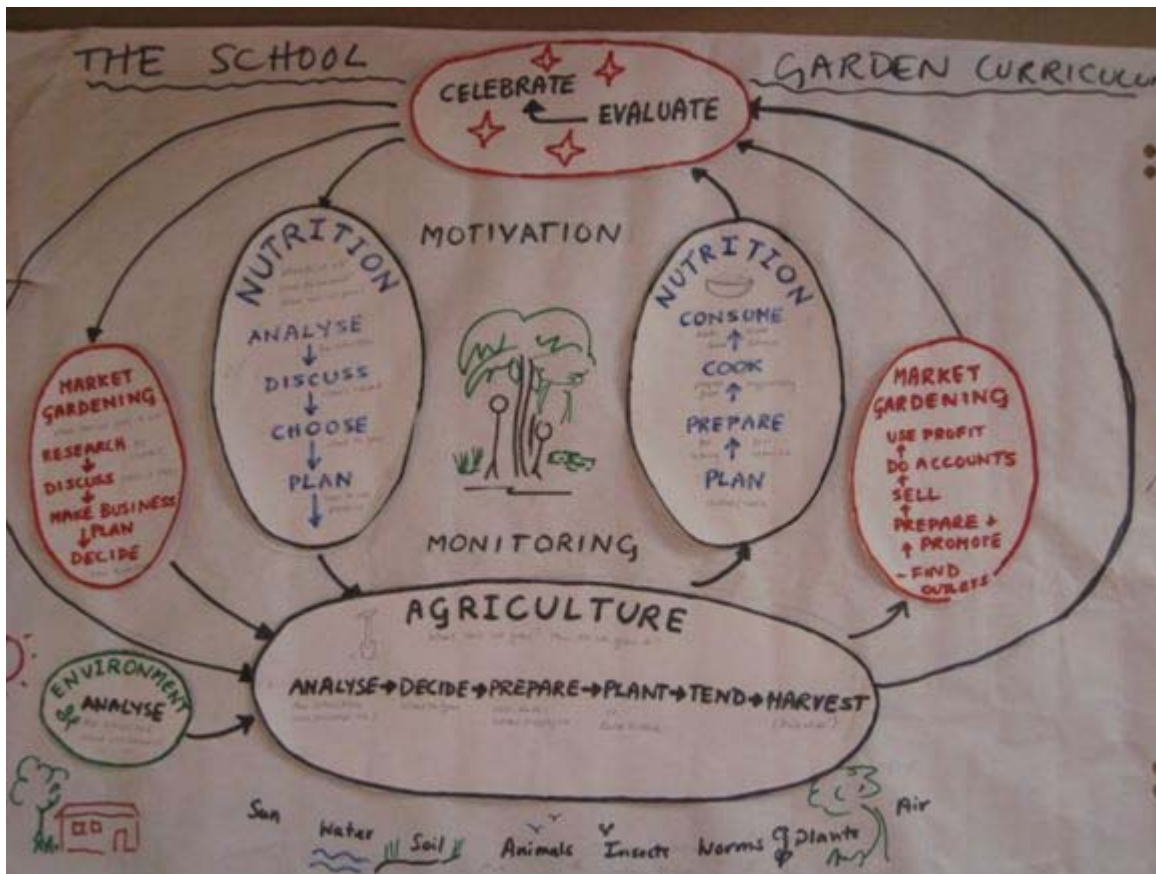 THE SCHOOL
GARDEN CURRICULU
CELEBRATE
EVALUATE
MOTIVATION
NUTRITION
ANALYSE
DISCUSS
CHOOSE
PLAN
NUTRITION
CONSUME
COOK
PREPARE
PLAN
MARKET
GARDENING
RESEARCH
DISCUSS
MAKE BUSINESS
PLAN
DECIDE
MARKET
GARDENING
USE PROFIT
DO ACCOUNTS
SELL
PREPARE +
PROMOTE
FIND
OUTLETS
MONITORING
AGRICULTURE
ANALYSE → DECIDE → PREPARE → PLANT → TEND → HARVEST
ENVIRONMENT
ANALYSE
Sun
Water
Soil
Animals
Insects
Worms
Plants
Air